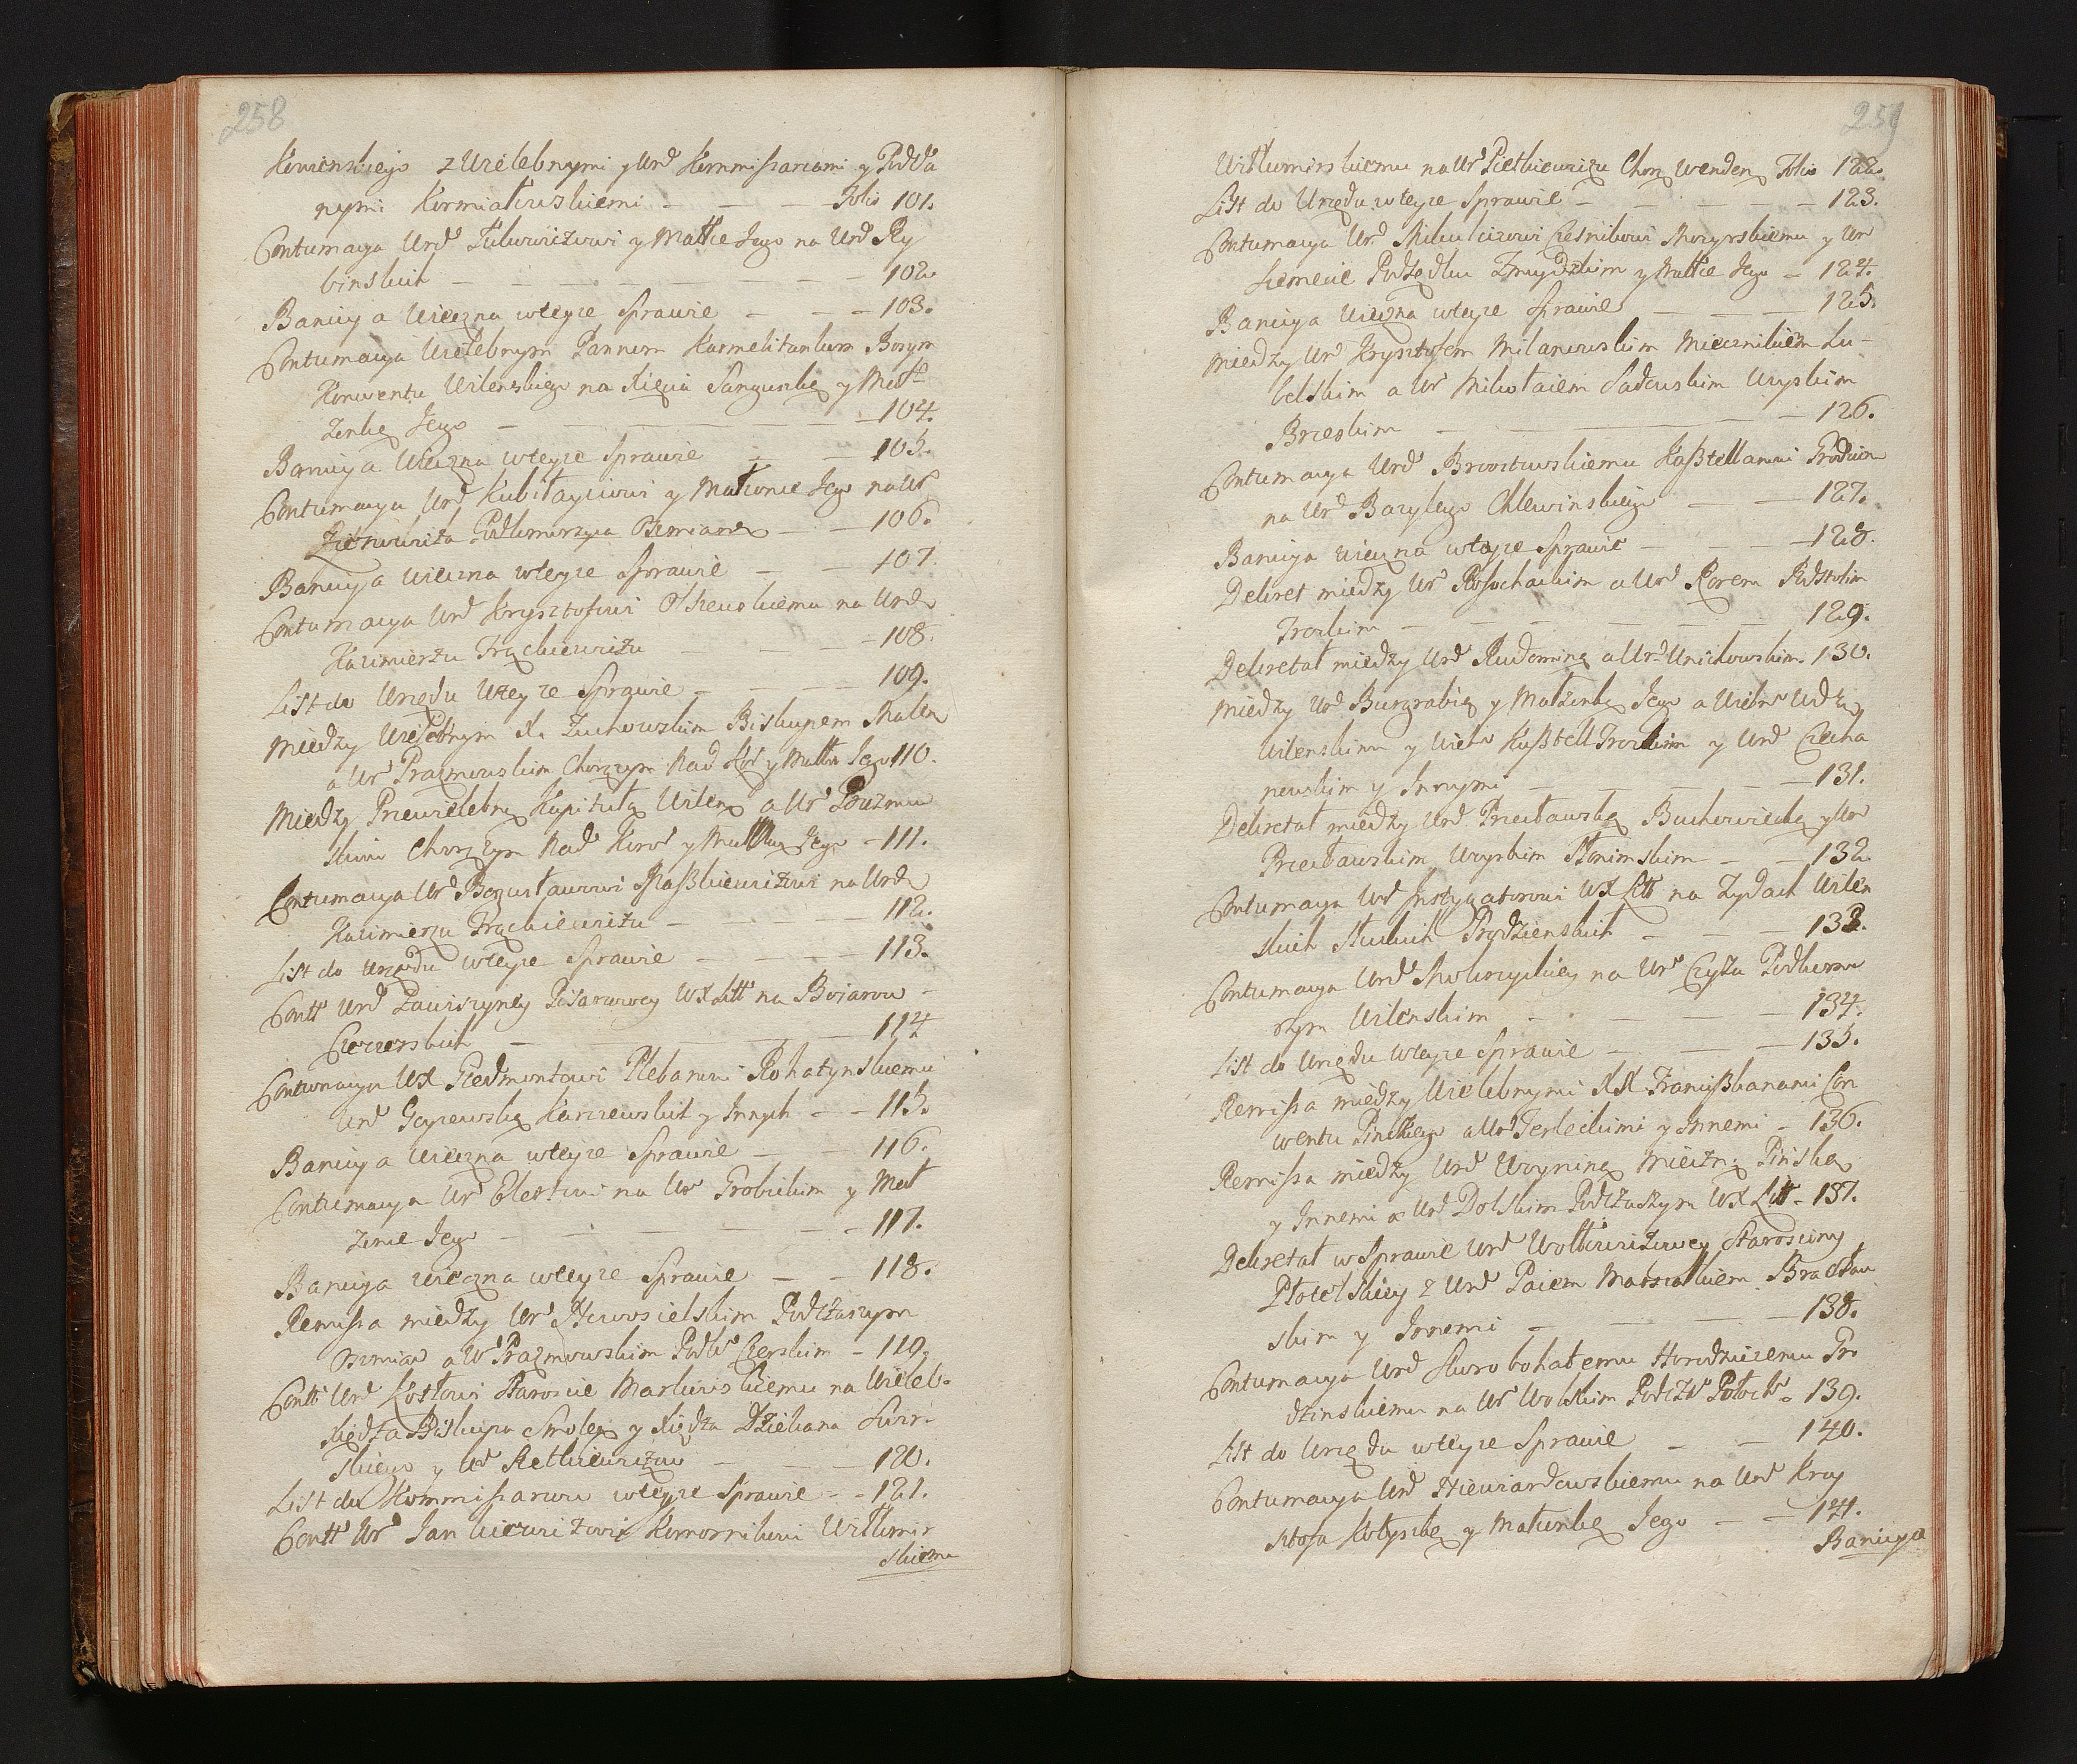 258
Kowienskiego z Wielebnymi y Urd Kommissarzami y Podda
nymi Kormiałowskiemi — — — Folio 101.
Contumacya Urd Zukowiczowi y Małce Jego na Urd Ry
binskich — — — — — — — 102.
Banicya Wieczna wteyze Sprawie — — — 103.
Contumacya Wielebnym Pannom Karmelitankom Bosym
Konwentu Wilenskiego na Xięcia Sanguszkę y Mał
zonkę Jego — — — — — 104.
Banicya Wieczna wteyze Sprawie — — 105.
Contumacya Urd y Małzonce Jego na Ur
Podkomorzyca Oszmians — — 106.
Banicya Wieczna wteyze Sprawie — — 107.
Contumacya Urd Krysztofowi Olszewskiemu na Urd
Kazimierzu Frąckiewiczu — — — 108.
List do Urzędu Wteyze Sprawie — — — 109.
Między Wielebnym X. Zuchowskim Biskupem
a Ur Prazmowskim Chorązym Nad y Małż Jego 110.
Między Przewielebną Kapitułą Wilens a Ur Prazmow
skim Chorązym Nad y Małżką Jego — 111.
Contumacya Ur Bogusławowi Paszkiewiczowi na Urd
Kazimierzu Frąckiewiczu — — — 112.
List do Urzędu wteyze Sprawie — — — 113.
Contt Urd Zawiszyney Pisarzowey WXLitt na Bojarow
Cieciersckich — — — — 114
Contumacya WX Giedmontowi Plebanowi Rohatynskiemu
Urd Karczewskich y Innych — — 115.
Banicya Wieczna wteyze Sprawie — — 116.
Contumacya Ur na Ur Grobickim y Mał
zonce Jego — — — — — 117.
Banicya Wieczna wteyze Sprawie — — 118.
Remissa między Ur Nowosielskim Podczaszym
Oszmian a Ur Prazmowskim Czerskim — 119.
Contt Urd Kosttowi Staroscie Markowskiemu na Wieleb.
Xiędza Biskupa Smolen y Xiędza Dziekana Swir
skiego y Ur Pietkiewiczow — — — 120.
List do Kommissarzow wteyze Sprawie — — 121.
Contt Ur Jankiewiczowi Komornikowi Wiłkomir
skiemu
259
Wiłkomirskiemu na Ur Pietkiewiczu Chorą Wenden Folio 122.
List do Urzędu wteyze Sprawie — — — — 123.
Contumacya Urd Mikuliczowi Czesnikowi Mozyrskiemu y Ur
Podsędku Zmuydzkim y Małce Jego — 124.
Banicya Wieczna wteyze Sprawie — — — 125.
Między Urd Krysztofem Milanowskim Miecznikiem Lu-
belskim a Ur Mikołaiem Sadowskim Woyskim
Brzeskim — — — — 126.
Contumacya Urd Brzostowskiemu Kasztellanowi
na Urd Bazylego Chlewinskiego — — 127.
Banicya Wieczna wteyze Sprawie — — — 128.
Dekret między Ur Rosochackim a Urd Podstolim
Trockim — — — — — 129.
Dekretał między Urd Rudominą a Urd Unichowskim. 130.
Między Urd Burgrabią y Małżonką Jego a Wielm Wdzą
Wilenskim y Wielm Kasztell Trockim y Urd Ciecha
nowskim y Innymi — — — — 131.
Dekretał między Urd Przecławską Buchowiecką y Ur
Przecławskim Woyskim Słonimskim — — 132
Contumacya Urd Instygatorowi WXLitt na Zydach Wilen
skich Słuckich — — — 133.
Contumacya Urd na Ur Czyża Podkomo
rzym Wilenskim — — — — 134.
List do Urzędu wteyze Sprawie — — — 135.
Remissa między Wielebnymi XX Franciszkanami Con
wentu Pinskiego a Ur Terleckimi y Innemi — 136.
Remissa między Urd Woyniną Mieczn: Pinską
y Innemi a Urd Dolskim Podczaszym WXLitt — 137.
Dekretał w Sprawie Urd Wołkowiczowey Starosciny
Płotelskiey z Urd Paiem Marszałkiem Bracław
skim y Innemi — — — — 138.
Contumacya Urd Skorobohatemu Horodniczemu Gro
dzinskiemu na Ur Wolskim Podczas Połock — 139.
List do Urzędu wteyze Sprawie — — 140.
Contumacya Urd Niewiardowskiemu na Urd Krzy
sztofa Kotyszkę y Małzonkę Jego — — 141.
Banicya